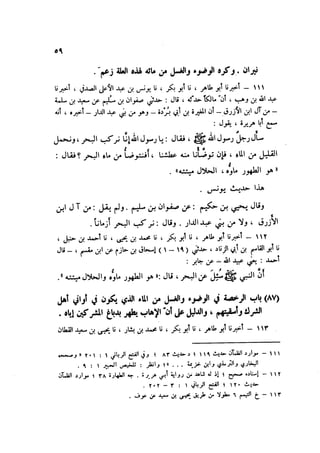 ٥٩
نيران . وكره الوضوء والغسل من مائه لهذه العلة زعم .
١١١ – أخبرنا أبو طاهر ، نا أبو بكر ، نا يونس بن عبد الأعلى الصدفي ، أخبرنا
عبد الله بن وهب ، أن مالكاً حدثه ، قال : حدثني صفوان بن سليم عن سعيد بن سلمة
– من آل ابن الأزرق – أن المغيرة بن أبي بردة – وهو من بني عبد الدار – أخبره ، أنه
سمع أبا هريرة ، يقول :
سأل رجل رسول الله ﷺ ، فقال : يا رسول الله إنا نركب البحر ، ونحمل
القليل من الماء ، فإن توضأنا منه عطشنا ، أفنتوضأ من ماء البحر ؟ فقال :
« هو الطهور ماؤه ، الحلال ميتته » .
هذا حديث يونس .
وقال يحيى بن حكيم : عن صفوان بن سليم . ولم يقل : من آل ابن
الأزرق ، ولا من بني عبد الدار . وقال : نركب البحر أزماناً .
١١٢ – أخبرنا أبو طاهر ، نا أبو بكر ، نا محمد بن يحيى ، نا أحمد بن حنبل ،
نا أبو القاسم بن أبي الزناد ، حدثني (١٩ – ١) إسحاق بن حازم عن ابن مقسم ، – قال
أحمد : يعني عبيد الله – عن جابر :
أن النبي ﷺ سُئِل عن البحر ، قال : « هو الطهور ماؤه والحلال ميتته » .
(٨٧) باب الرخصة في الوضوء والغسل من الماء الذي يكون في أواني أهل
الشرك وأسقيتهم ، والدليل على أن الإهاب يطهر بدباغ المشركين إياه .
١١٣ – أخبرنا أبو طاهر ، نا أبو بكر ، نا محمد بن بشار ، نا يحيى بن سعيد القطان
١١١ – موارد الظمآن حديث ١١٩
البخاري والترمذي وابن خزيمة
١١٢ – إسناده صحيح
حديث ١٢٠ ؛ الفتح الرباني ١ : ٣ – ٢٠٢ .
١١٣ – خ التيمم ٦ مطولا من طريق يحيى بن سعيد عن عوف .